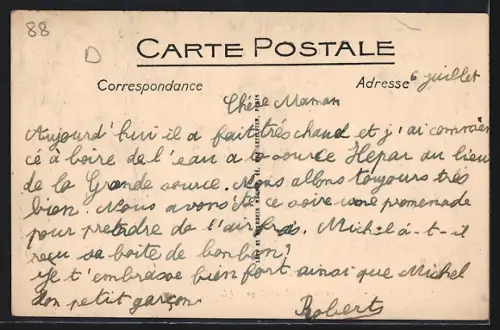 88
D
CARTE POSTALE
Correspondance
Adresse
6 juillet
Chère Maman
Aujourd'hui il a fait très chaud et j'ai commen
cé à boire de l'eau a la source Hepar au lieu
de la Grande source. Nous allons toujours très
bien. Nous avons été ce soire une promenade
pour pretndre de l'air frais. Michel a-t-il
reçu sa boite de bonbon?
Je t'embrasse bien fort ainsi que Michel
ton petit garçon
Robert